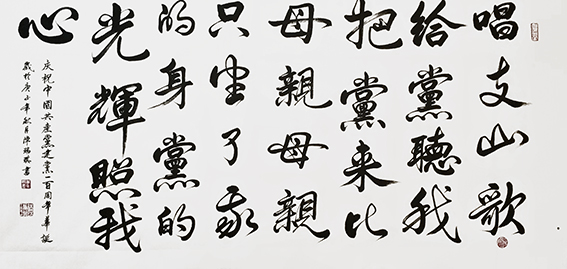 唱支山歌
给黨聽我
把黨来比
母親母親
只生了我
的身黨的
光輝照我
心
庆祝中國共産黨建黨一百周年華誕
歲於庚子年秋月陳瑞書